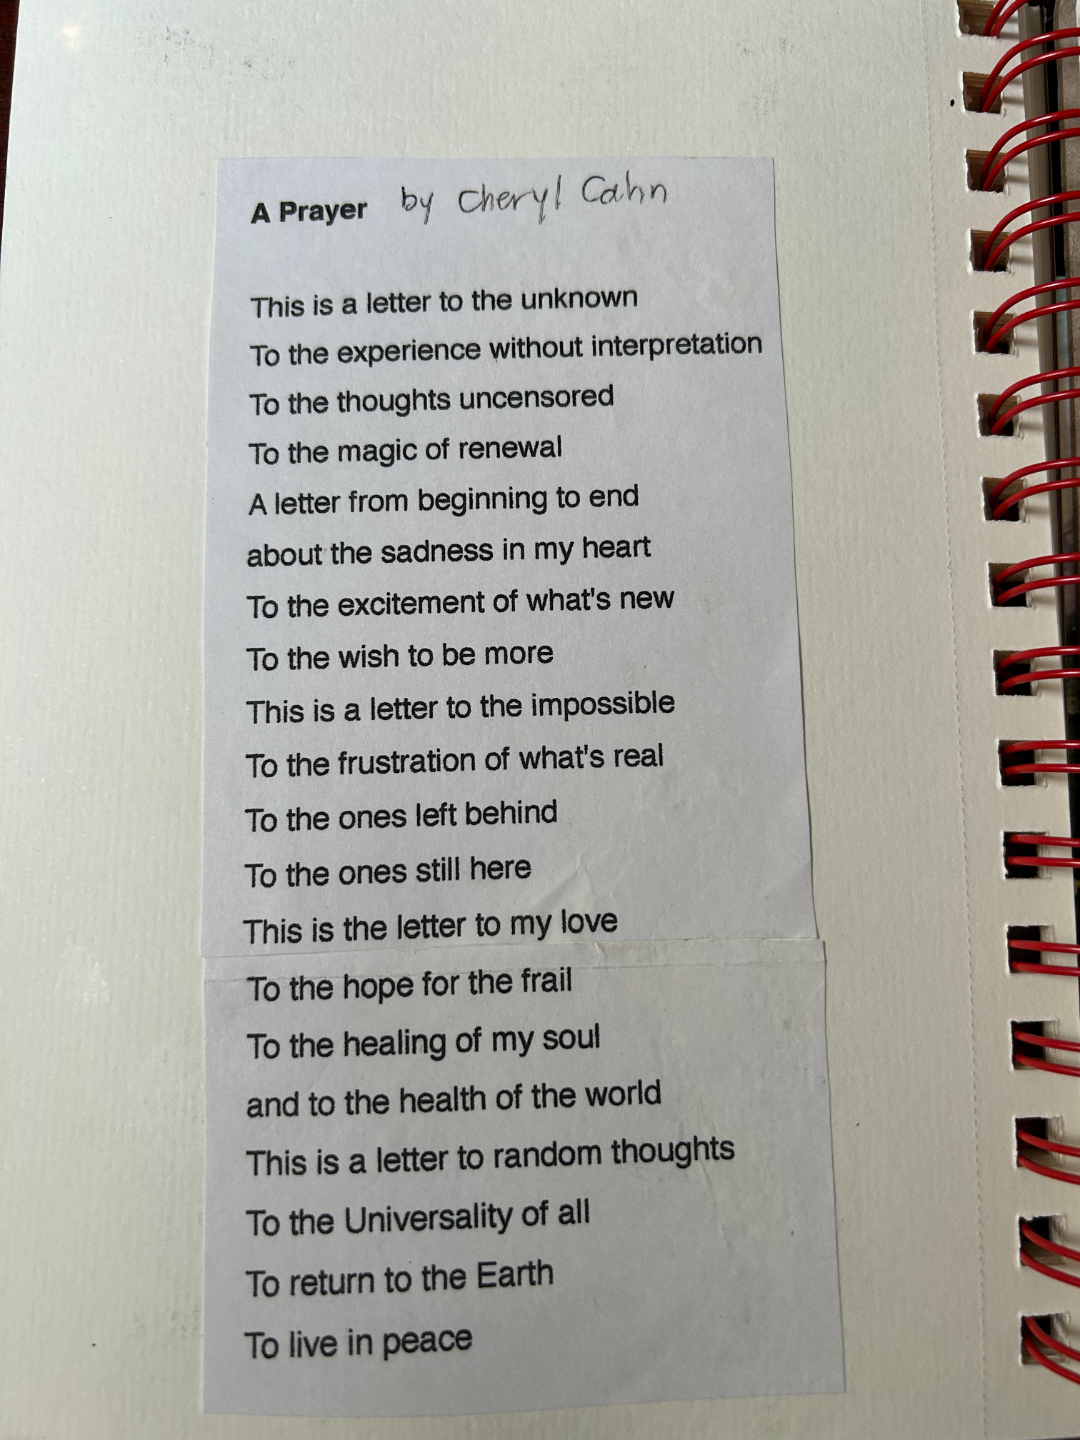 A Prayer by Cheryl Cahn
This is a letter to the unknown
To the experience without interpretation
To the thoughts uncensored
To the magic of renewal
A letter from beginning to end
about the sadness in my heart
To the excitement of what's new
To the wish to be more
This is a letter to the impossible
To the frustration of what's real
To the ones left behind
To the ones still here
This is the letter to my love
To the hope for the frail
To the healing of my soul
and to the health of the world
This is a letter to random thoughts
To the Universality of all
To return to the Earth
To live in peace